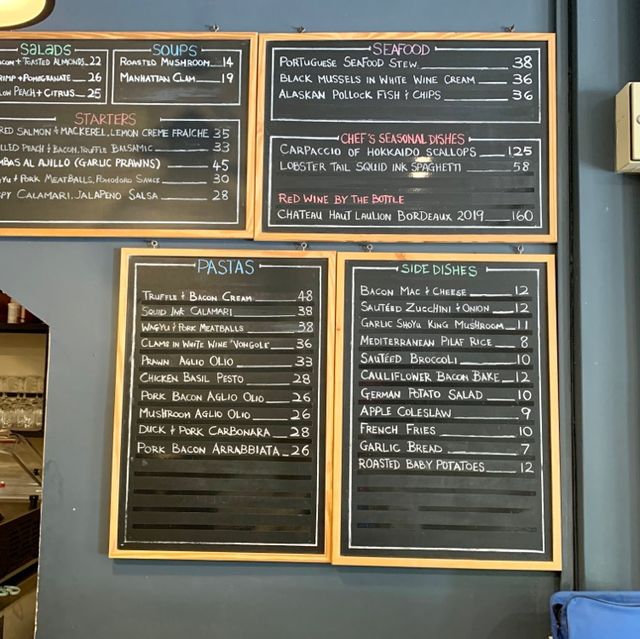 SALADS
BACON + TOASTED ALMONDS 22
+ POMEGRANATE 26
PEACH + CITRUS 25
SOUPS
ROASTED MUSHROOM 14
MANHATTAN CLAM 19
STARTERS
SALMON & MACKEREL, LEMON CREME FRAICHE 35
PEACH & BACON, TRUFFLE BALSAMIC 33
AL AJILLO (GARLIC PRAWNS) 45
& PORK MEATBALLS, POMODORO SAUCE 30
CALAMARI, JALAPENO SALSA 28
SEAFOOD
PORTUGUESE SEAFOOD STEW 38
BLACK MUSSELS IN WHITE WINE CREAM 36
ALASKAN POLLOCK FISH & CHIPS 36
CHEF'S SEASONAL DISHES
CARPACCIO OF HOKKAIDO SCALLOPS 125
LOBSTER TAIL SQUID INK SPAGHETTI 58
RED WINE BY THE BOTTLE
CHATEAU HAUT LAULION BORDEAUX 2019 160
PASTAS
TRUFFLE & BACON CREAM 48
SQUID INK CALAMARI 38
WAGYU & PORK MEATBALLS 38
CLAMS IN WHITE WINE 'VONGOLE' 36
PRAWN AGLIO OLIO 33
CHICKEN BASIL PESTO 28
PORK BACON AGLIO OLIO 26
MUSHROOM AGLIO OLIO 26
DUCK & PORK CARBONARA 28
PORK BACON ARRABBIATA 26
SIDE DISHES
BACON MAC & CHEESE 12
SAUTÉED ZUCCHINI & ONION 12
GARLIC SHOYU KING MUSHROOM 11
MEDITERRANEAN PILAF RICE 8
SAUTÉED BROCCOLI 10
CAULIFLOWER BACON BAKE 12
GERMAN POTATO SALAD 10
APPLE COLESLAW 9
FRENCH FRIES 10
GARLIC BREAD 7
ROASTED BABY POTATOES 12